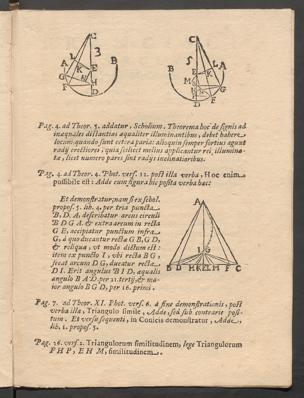 C
3
A
L
B
K
E
H
G
F
D
C
5
B
L
A
E
K
M
N
G
H
F
D
Pag. 4. ad Theor. 3. addatur, Scholium. Theorema hoc de signis ad
inæquales distantias æqualiter illuminantibus, debet habere
locum, quando sunt cetera paria: alioquin semper fortius agunt
radij erectiores, quia scilicet melius applicantur rei illumina-
tæ, licet numero pares sint radijs inclinatioribus.
Pag. 4. ad Theor. 4. Phot. vers. 12. post illa verba, Hoc enim
possibile est: Adde cum figura hic posita verba hæc:
Et demonstratur; nam si ex schol.
propos. 5. lib. 4. per tria puncta
B, D, A, describatur arcus circuli
B D G A, & extra arcum in recta
G E, accipiatur punctum infra
G, à quo ducantur recta G B, G D,
& reliqua, vt modo dictum est:
item ex puncto I, vbi recta B G,
secat arcum D G, ducatur recta
D I. Erit angulus B I D, æqualis
angulo B A D, per 21. tertij, & ma-
ior angulo B G D, per 16. primi.
A
I G
B D H K E L M F C
Pag. 7. ad Theor. XI. Phot. vers. 6. à fine demonstrationis, post
verba illa, Triangulo simile, Adde, sed sub contrarie posi-
tum. Et versu sequenti, in Conicis demonstratur, Adde,
lib. 1. propos. 5.
Pag. 26. vers. 2. Triangulorum similitudinem, lege Triangulorum
F H P, E H M, similitudinem.